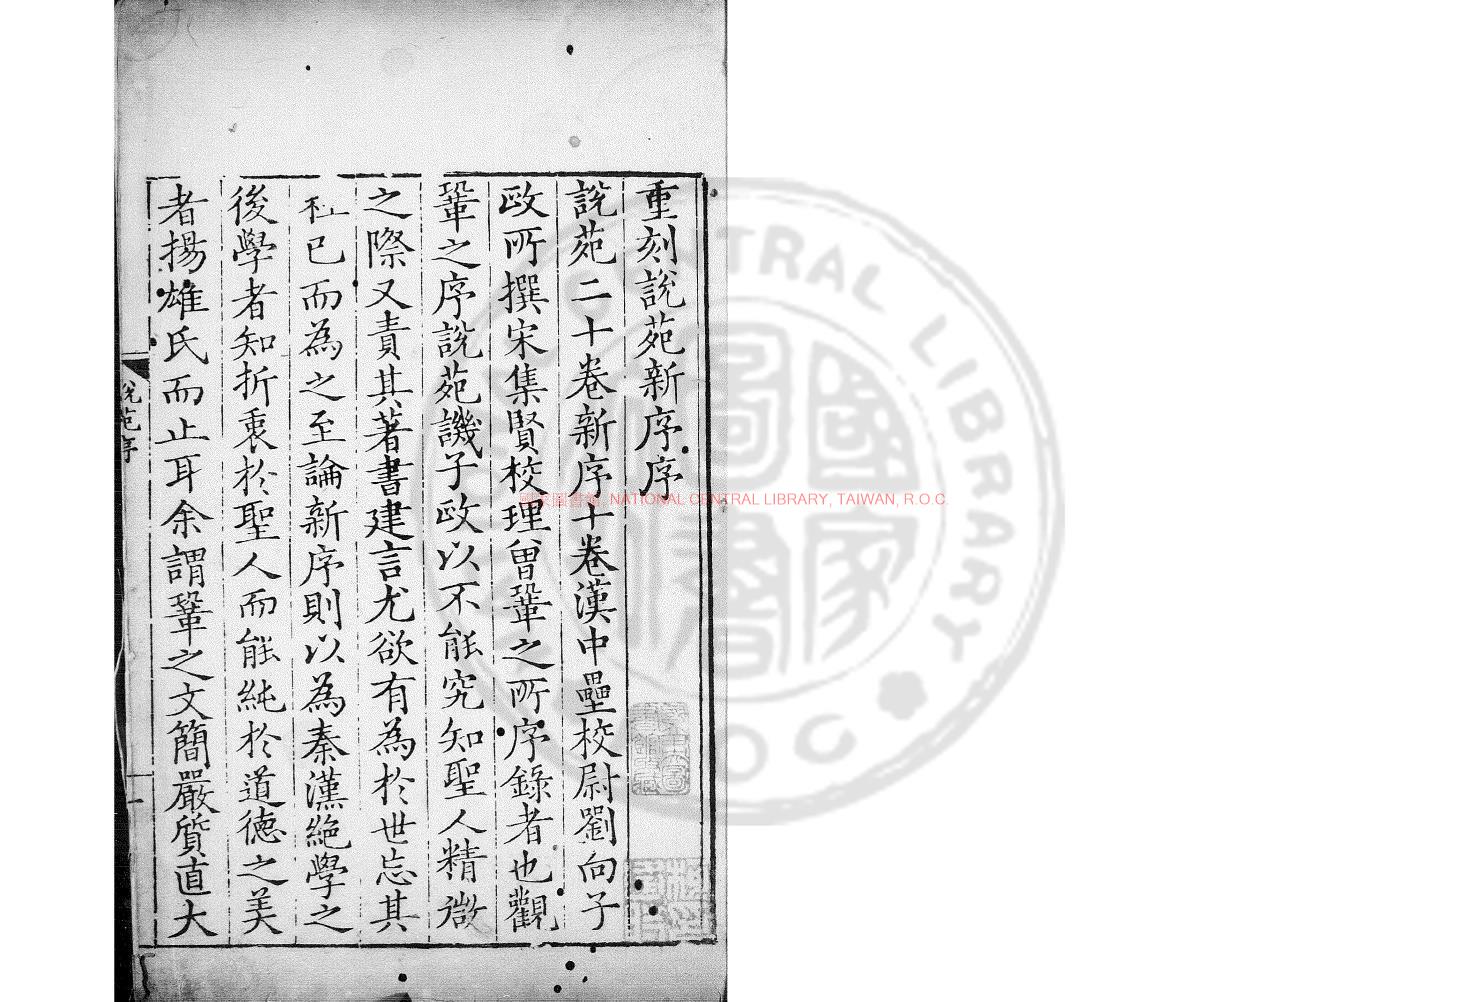 重刻説苑新序序
説苑二十卷新序十卷漢中壘校尉劉向子
政所撰宋集賢校理曾鞏之所序錄者也觀
鞏之序説苑譏子政以不能究知聖人精微
之際又責其著書建言尤欲有為於世忘其
枉已而為之至論新序則以為秦漢絶學之
後學者知折衷於聖人而能純於道德之美
者揚雄氏而止耳余謂鞏之文簡嚴質直大
説苑序
一
國家圖書館 NATIONAL CENTRAL LIBRARY, TAIWAN, R.O.C.
CENTRAL LIBRARY
國家圖書